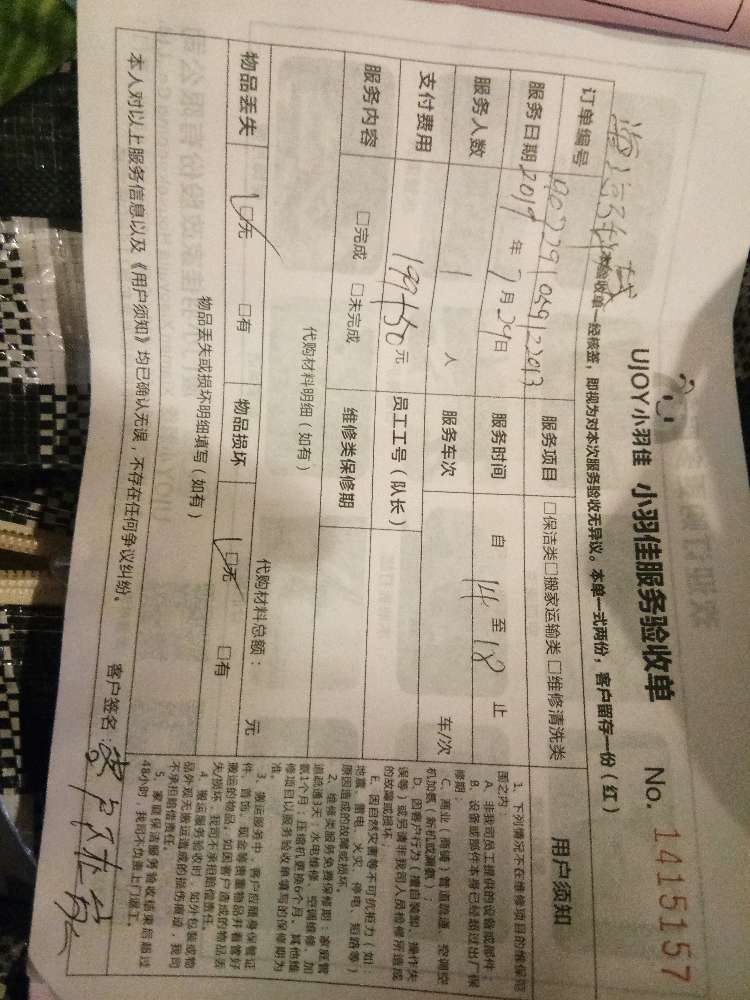 UJOY小羽佳 小羽佳服务验收单 No. 1415157
本验收单一经核签，即视为对本次服务验收无异议。本单一式两份，客户留存一份（红）
订单编号 服务项目 □保洁类□搬家运输类□维修清洗类
服务日期 2019 年 7 月 29 日 服务时间 自 14 至 18 止
服务人数 1 人 服务车次 车/次
支付费用 199+50 元 员工工号（队长）
服务内容 □完成 □未完成 维修类保修期
代购材料明细（如有）
代购材料总额： 元
物品丢失 □无 □有 物品损坏 □无 □有
物品丢失或损坏明细填写（如有）
本人对以上服务信息以及《用户须知》均已确认无误，不存在任何争议纠纷。
客户签名：
用户须知
1、下列情况不在维修项目的维保范
围之内：
A、非我司员工提供的设备或部件；
B、设备或部件本身已经超过出厂保
修期；
C、商业（商铺）管道疏通、空调空
机加氟（新机或漏氟）；
D、因客户行为（擅自装卸、操作失
误等）或另请非我司人员检修所造成
的故障或损坏；
E、因自然灾害等不可抗拒力（如：
地震、雷电、火灾、停电、短路等）
原因造成的故障或损坏。
2、维修类服务免费保修期：家庭管
道疏通3天；水电维修、空调维修、加
氟1个月；压缩机更换6个月。其他维
修项目以服务验收单填写的保修期为
准。
3、搬运服务中，客户应随身保管证
件、首饰、现金等贵重物品并看管好
搬运的物品。如因客户造成的物品丢
失/损坏，我司不承担赔偿责任。
4、搬运服务验收时，如外包装或物
品外观无搬运造成的损伤痕迹，我司
不承担赔偿责任。
5、家庭保洁服务验收结束后超过
48小时，我司不负责上门返工。